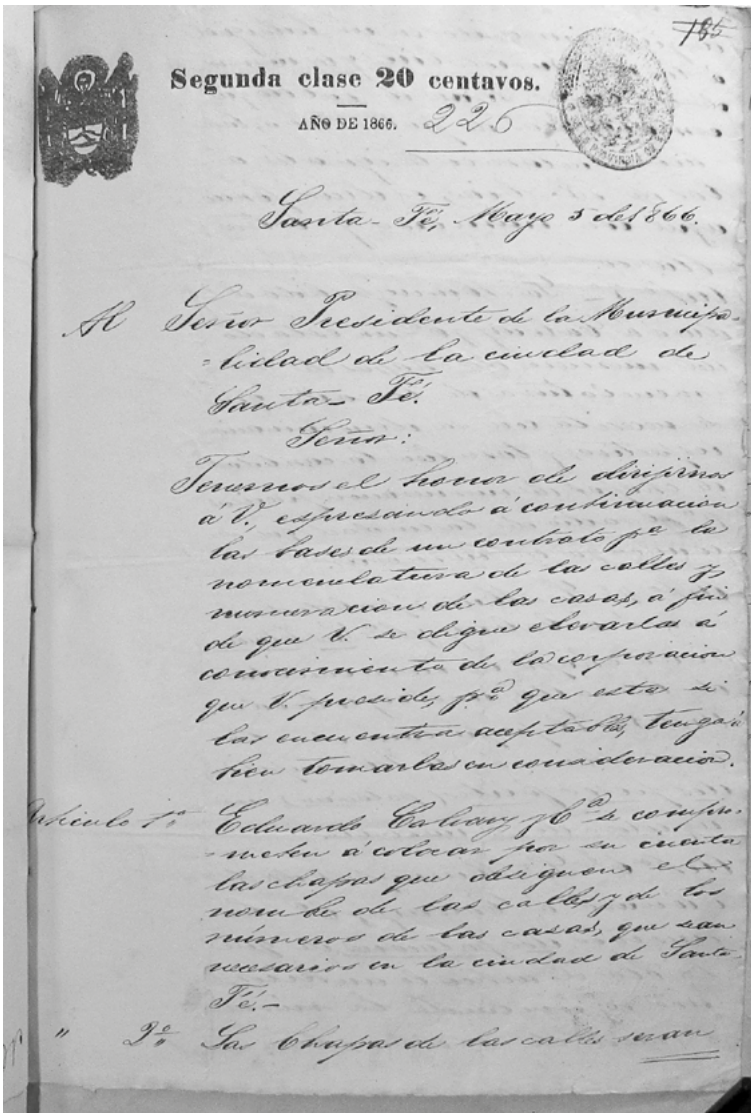 185
Segunda clase 20 centavos.
AÑO DE 1866. 225
PROVINCIA DE
Santa-Fé, Mayo 5 de 1866.
Al Señor Presidente de la Municipa-
-lidad de la ciudad de
Santa-Fé.
Señor:
Tenemos el honor de dirijirnos
á V., espresando á continuacion
las bases de un contrato pª la
nomenclatura de las calles y
numeracion de las casas, á fin
de que V. se digne elevarlas á
conocimiento de la corporacion
que V. preside, pª que esta si
las encuentra aceptables, tenga á
bien tomarlas en consideracion.
Articulo 1º Eduardo Calvary y Cª se compro-
-meten á colocar por su cuenta
las chapas que designen el
nombre de las calles y de los
números de las casas, que sean
necesarios en la ciudad de Santa
Fé.-
" 2º Las Chapas de las calles seran